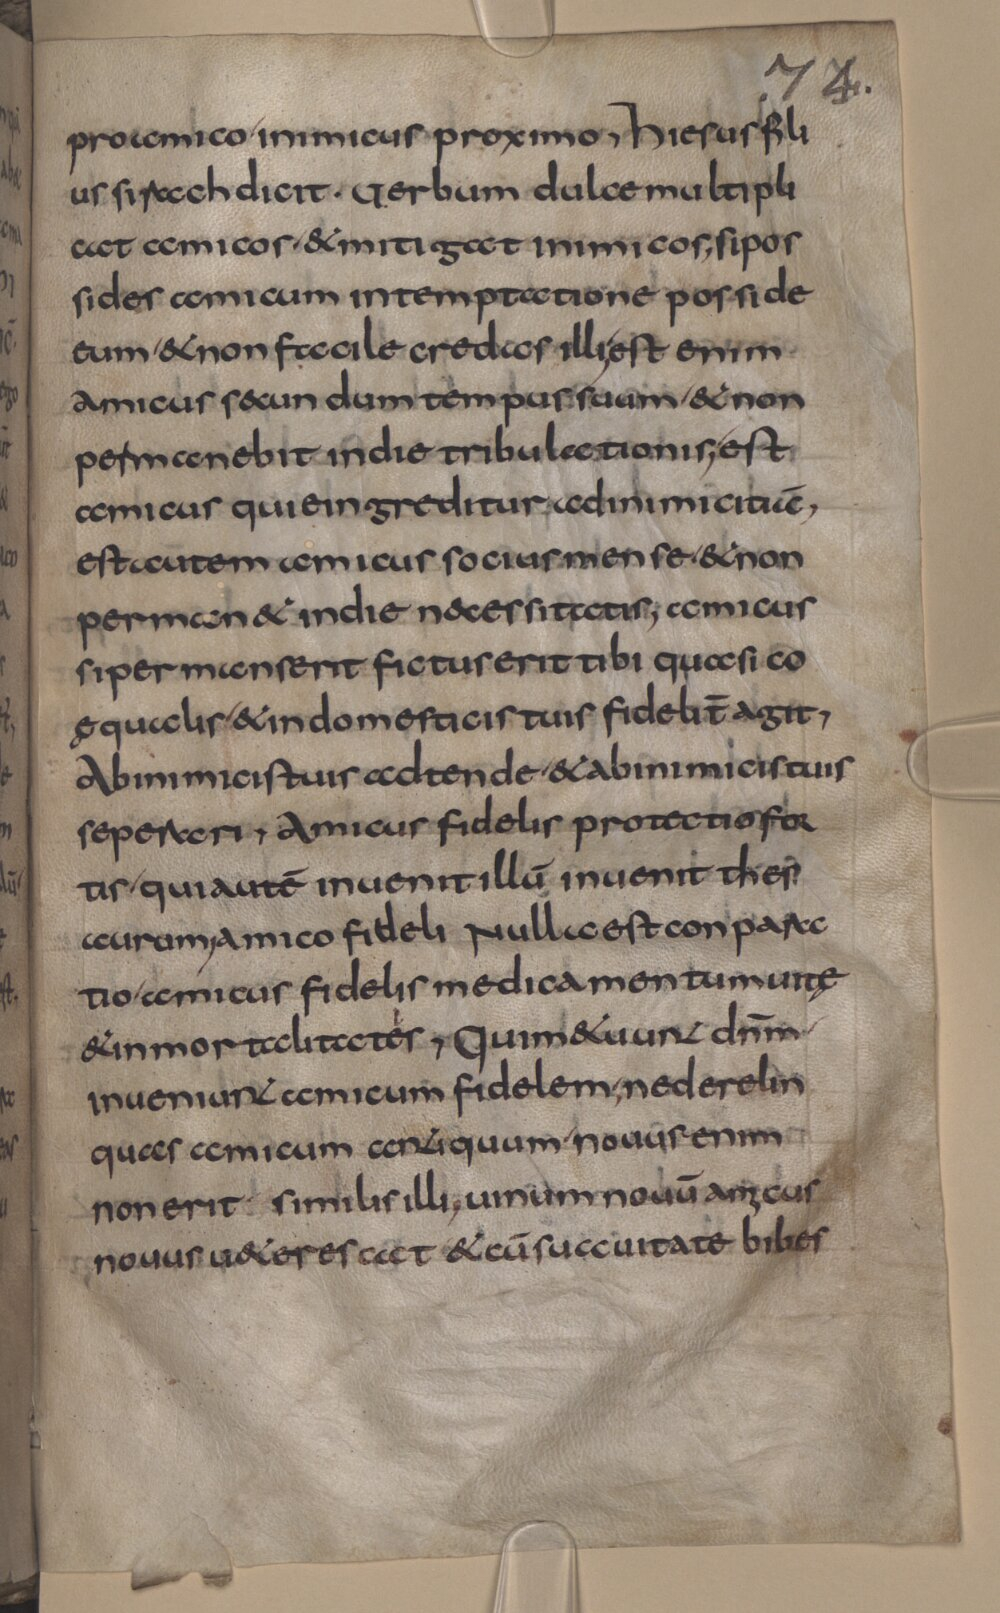 74.
pro amico inimicus proximo, hiesus fili
us sirach dicit. Uerbum dulce multipli
cat amicos, & mitigat inimicos; si pos
sides amicum in temptatione posside
eum, & non facile credas illi; est enim
amicus secundum tempus suum, & non
permanebit in die tribulationis; est
amicus qui eingreditur ad inimicitiā,
est autem amicus socius mense, & non
perman& in die necessitatis; amicus
si permanserit fictus erit tibi quasi co
ęqualis, & in domesticis tuis fidelit̄ agit,
Ab inimicis tuis adtende, & ab inimicis tuis
seperari, Amicus fidelis protectio for
tis, qui autē inuenit illū inuenit thes
aurum; amico fideli Nulla est conpara
tio, amicus fidelis medicamentum uitę
& inmortalitates, Qui m&uunt dn̄m
inueniunt amicum fidelem; ne derelin
quas amicum antiquum, nouus enim
non erit similis illi, uinum nouū amicus
nouus u&erescat & cū suauitate bibes